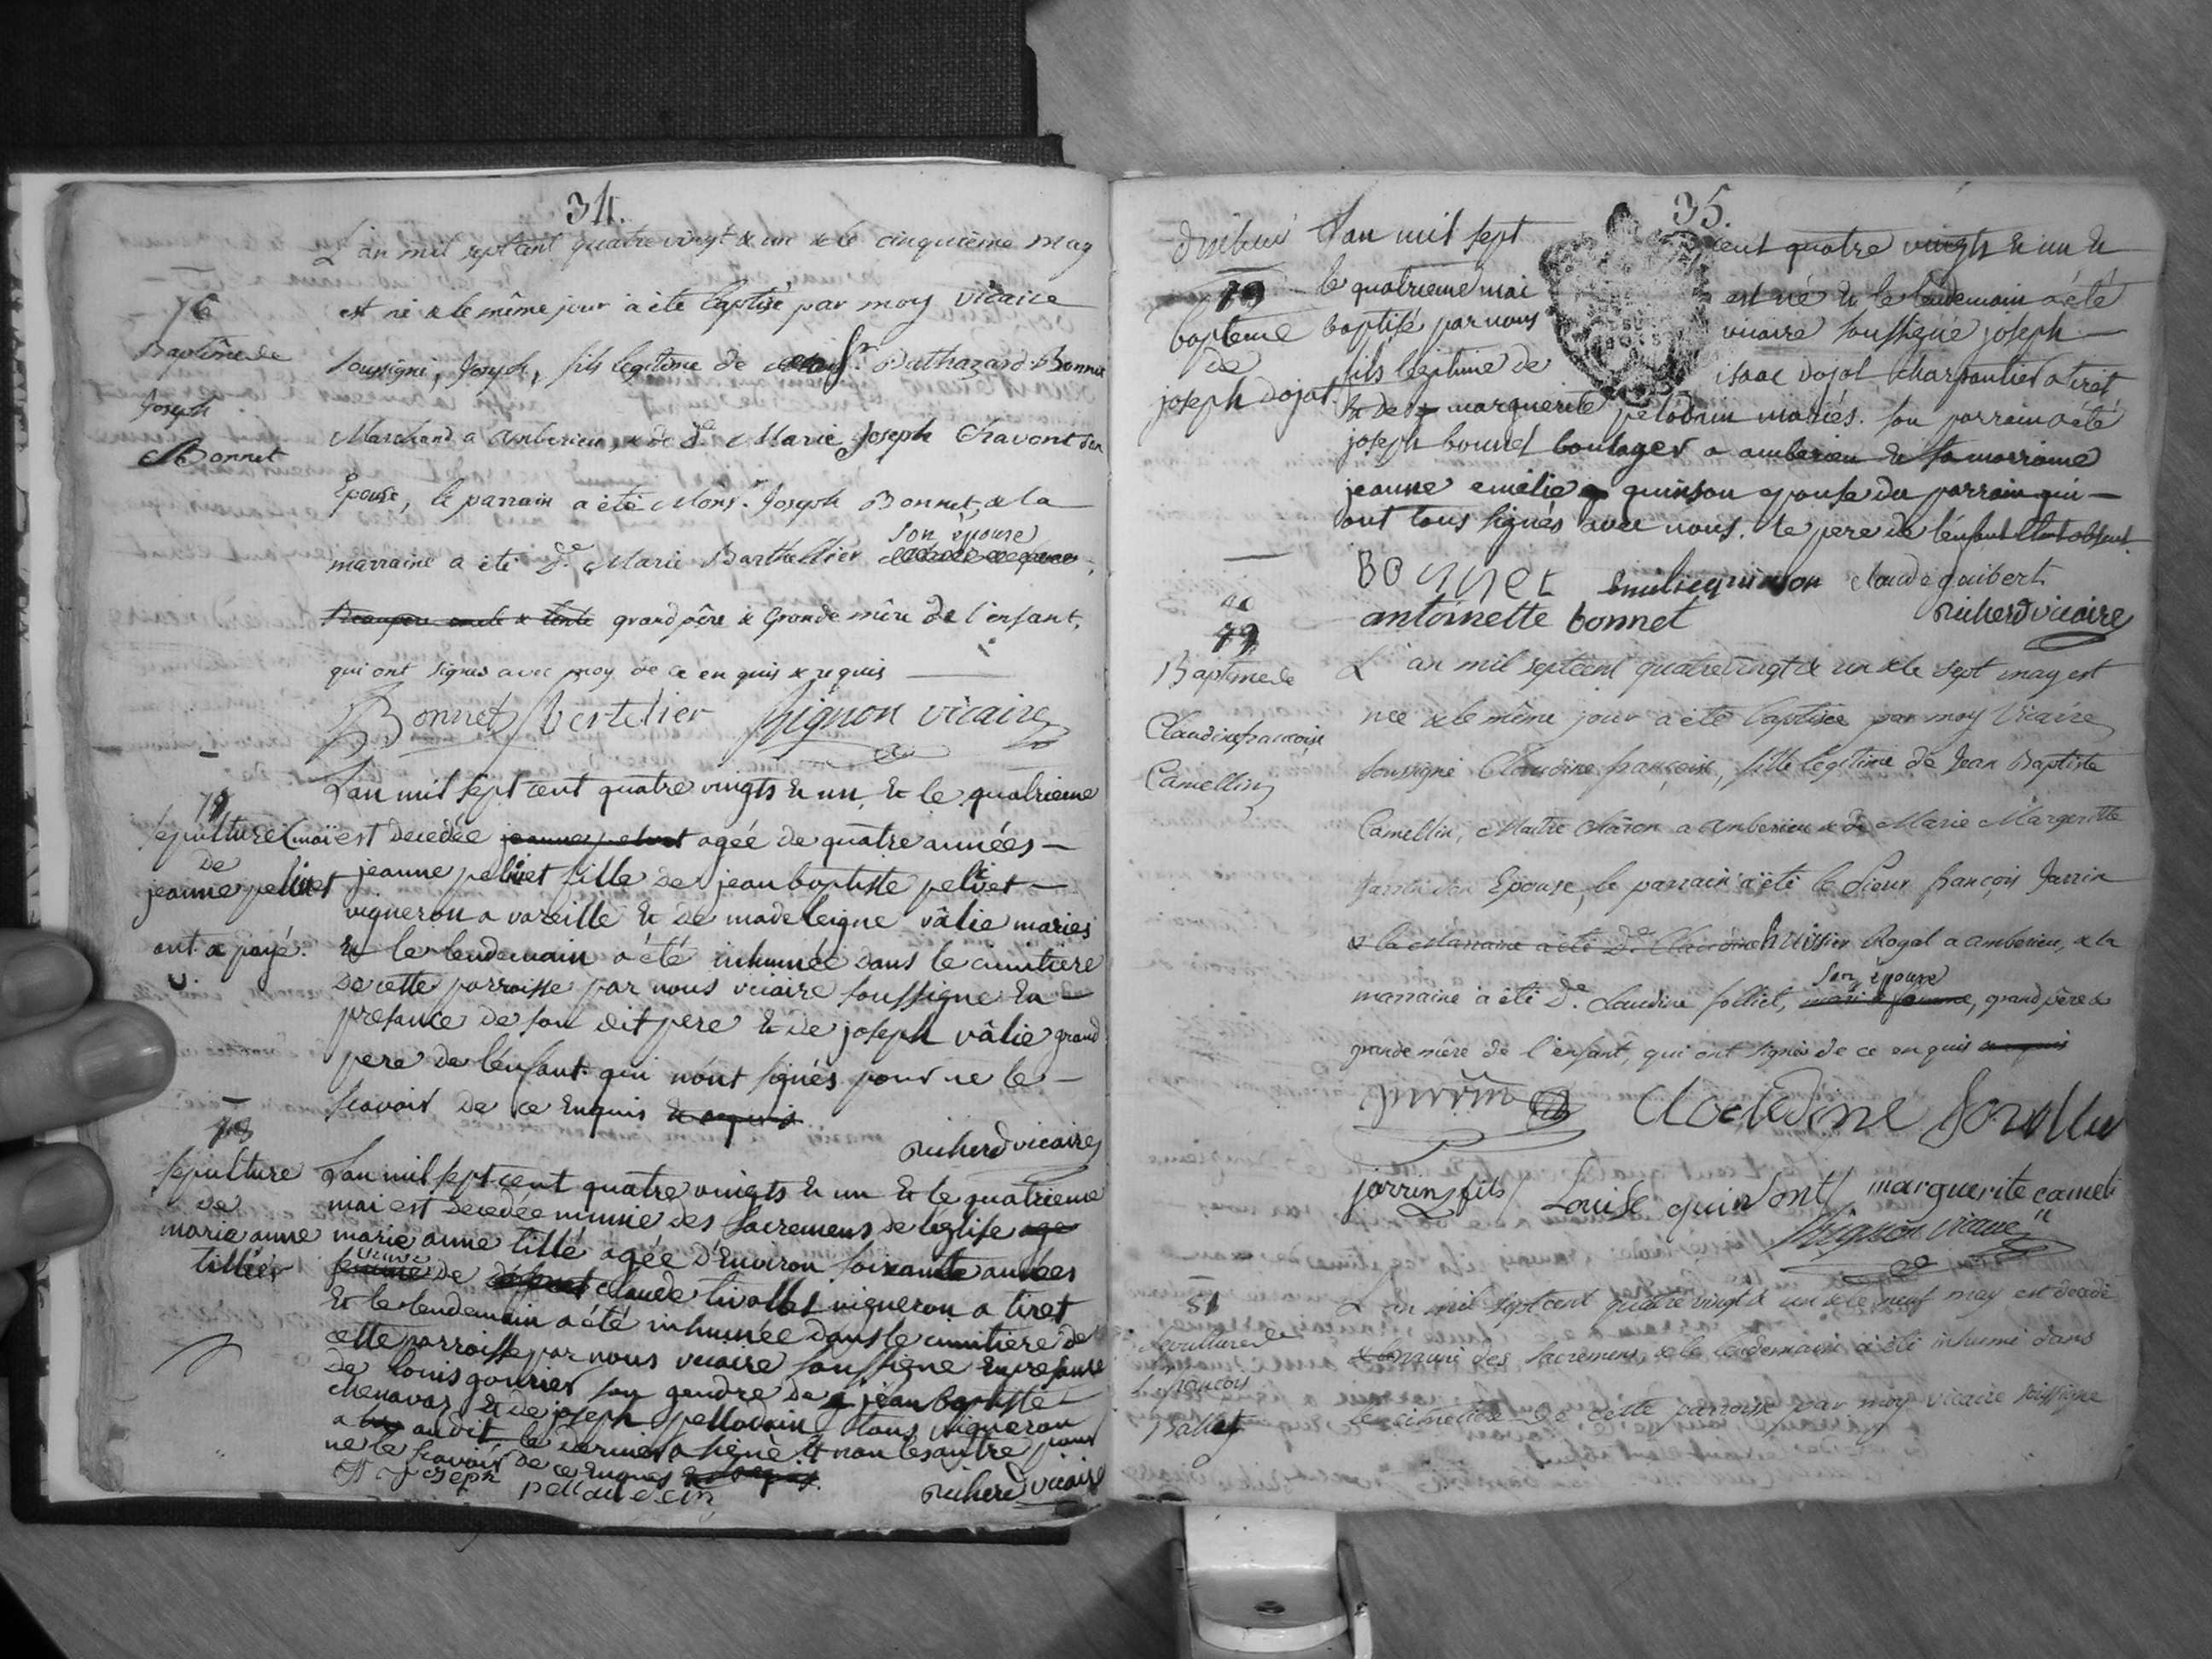 34.
L'an mil septcent quatre vingt & un & le cinquième may
76
est né & le même jour a été baptisé par moy vicaire
Baptême de
soussigné, Joseph, fils legitime de Sr. Balthazard Bonnet
Joseph
Bonnet
Marchand a Amberieu, & de De Marie Joseph Chavent son
Epouse, le parrain a été Monsr. Joseph Bonnet, & la
son épouse
marraine a été De. Marie Barthellier
grand père & Grande mère de l'enfant,
qui ont signés avec moy de ce enquis & requis
Bonnet Bertelier Mignon vicaire
L'an mil sept cent quatre vingts & un, & le quatrieme
sepulture mai est decedée jeanne pelivet agée de quatre années
de
jeanne pelivet
jeanne pelivet fille de jean baptiste pelivet
vigneron a vareille & de madeleigne vâlie mariés
ont a payé.
& le lendemain a été inhumée dans le cimitiere
de cette parroisse par nous vicaire soussigné en
presance de son dit pere & de joseph vâlie grand
pere de lenfant qui n'ont signés pour ne le
scavoir de ce enquis & requis
Richerd vicaire
78
sepulture
de
marie anne
tillier
L'an mil sept cent quatre vingts & un & le quatrieme
mai est decedée munie des sacremens de léglise
marie anne tillé agée d'environ soixante années
veuve
femme de claude tivollet vigneron a tiret
& le lendemain a été inhumée dans le cimitiere de
cette parroisse par nous vicaire soussigné en presance
de louis gourier son gendre de jean baptiste
chenavas & de joseph pellodain tous vigneron
audit le dernier a signé & non les autre pour
ne le scavoir de ce enquis & requis
Joseph pellaudein
Richerd vicaire
35.
79
bapteme
de
joseph dojat.
L'an mil sept cent quatre vingts & un &
le quatrieme mai est né & le lendemain a été
baptisé par nous vicaire soussigné joseph
fils légitime de isaac dojat charpantier a tiret
& de marguerite pelodain mariés. son parrain a été
joseph bonnet boulager a amberieu & sa marraine
jeanne emélie quinson epouse du parrain qui
ont tous signés avec nous. le pere de l'enfant étant absent.
BONNET emilie quinson claude guibert
antoinette bonnet Richerd vicaire
Baptême de
Claudine françoise
Camellin
L'an mil septcent quatrevingt & un & le sept may est
née & le même jour a été baptisée par moy Vicaire
soussigné Claudine françoise, fille legitime de Jean Baptiste
Camellin, Maitre Charon a Amberieu & de Marie Margeritte
Jarrin son Epouse, le parrain a été le Sieur françois Jarrin
& la Marraine a été De Claudine huissier Royal a amberieu, & la
son épouse
marraine a été De. Claudine folliet, mari & femme, grand père &
grande mère de l'enfant, qui ont signés de ce enquis & requis
jarrin
jarrin fils Louise quinson marguerite cameli
Mignon vicaire
81
Sepulture de
françois
Ballet
L'an mil septcent quatre vingt & un & le neuf may est decedé
muni des Sacremens, & le lendemain a été inhumé dans
le cimetiere de cette parroisse par moy vicaire soussigné